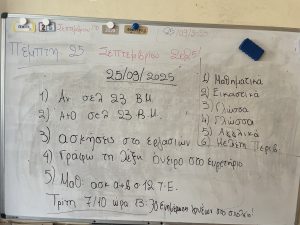 Σεπτεμβρίου
25/09/2025
Πέμπτη 25 Σεπτεμβρίου 2025!
25/09/2025
1) Αν σελ 23 Β.Μ.
2) Α+Ο σελ 23 Β.Μ.
3) ασκήσεις στο εργασιών
4) Γράφω τη λέξη όνειρο στο ευρετήριο
5) Μαθ: ασκ α+β σ 12 Τ.Ε.
Τρίτη 7/10 ώρα 13:30 ενημέρωση γονέων στο σχολείο!
1) Μαθηματικά
2) Εικαστικά
3) Γλώσσα
4) Γλώσσα
5) Αγγλικά
6) Μελέτη Περιβ.